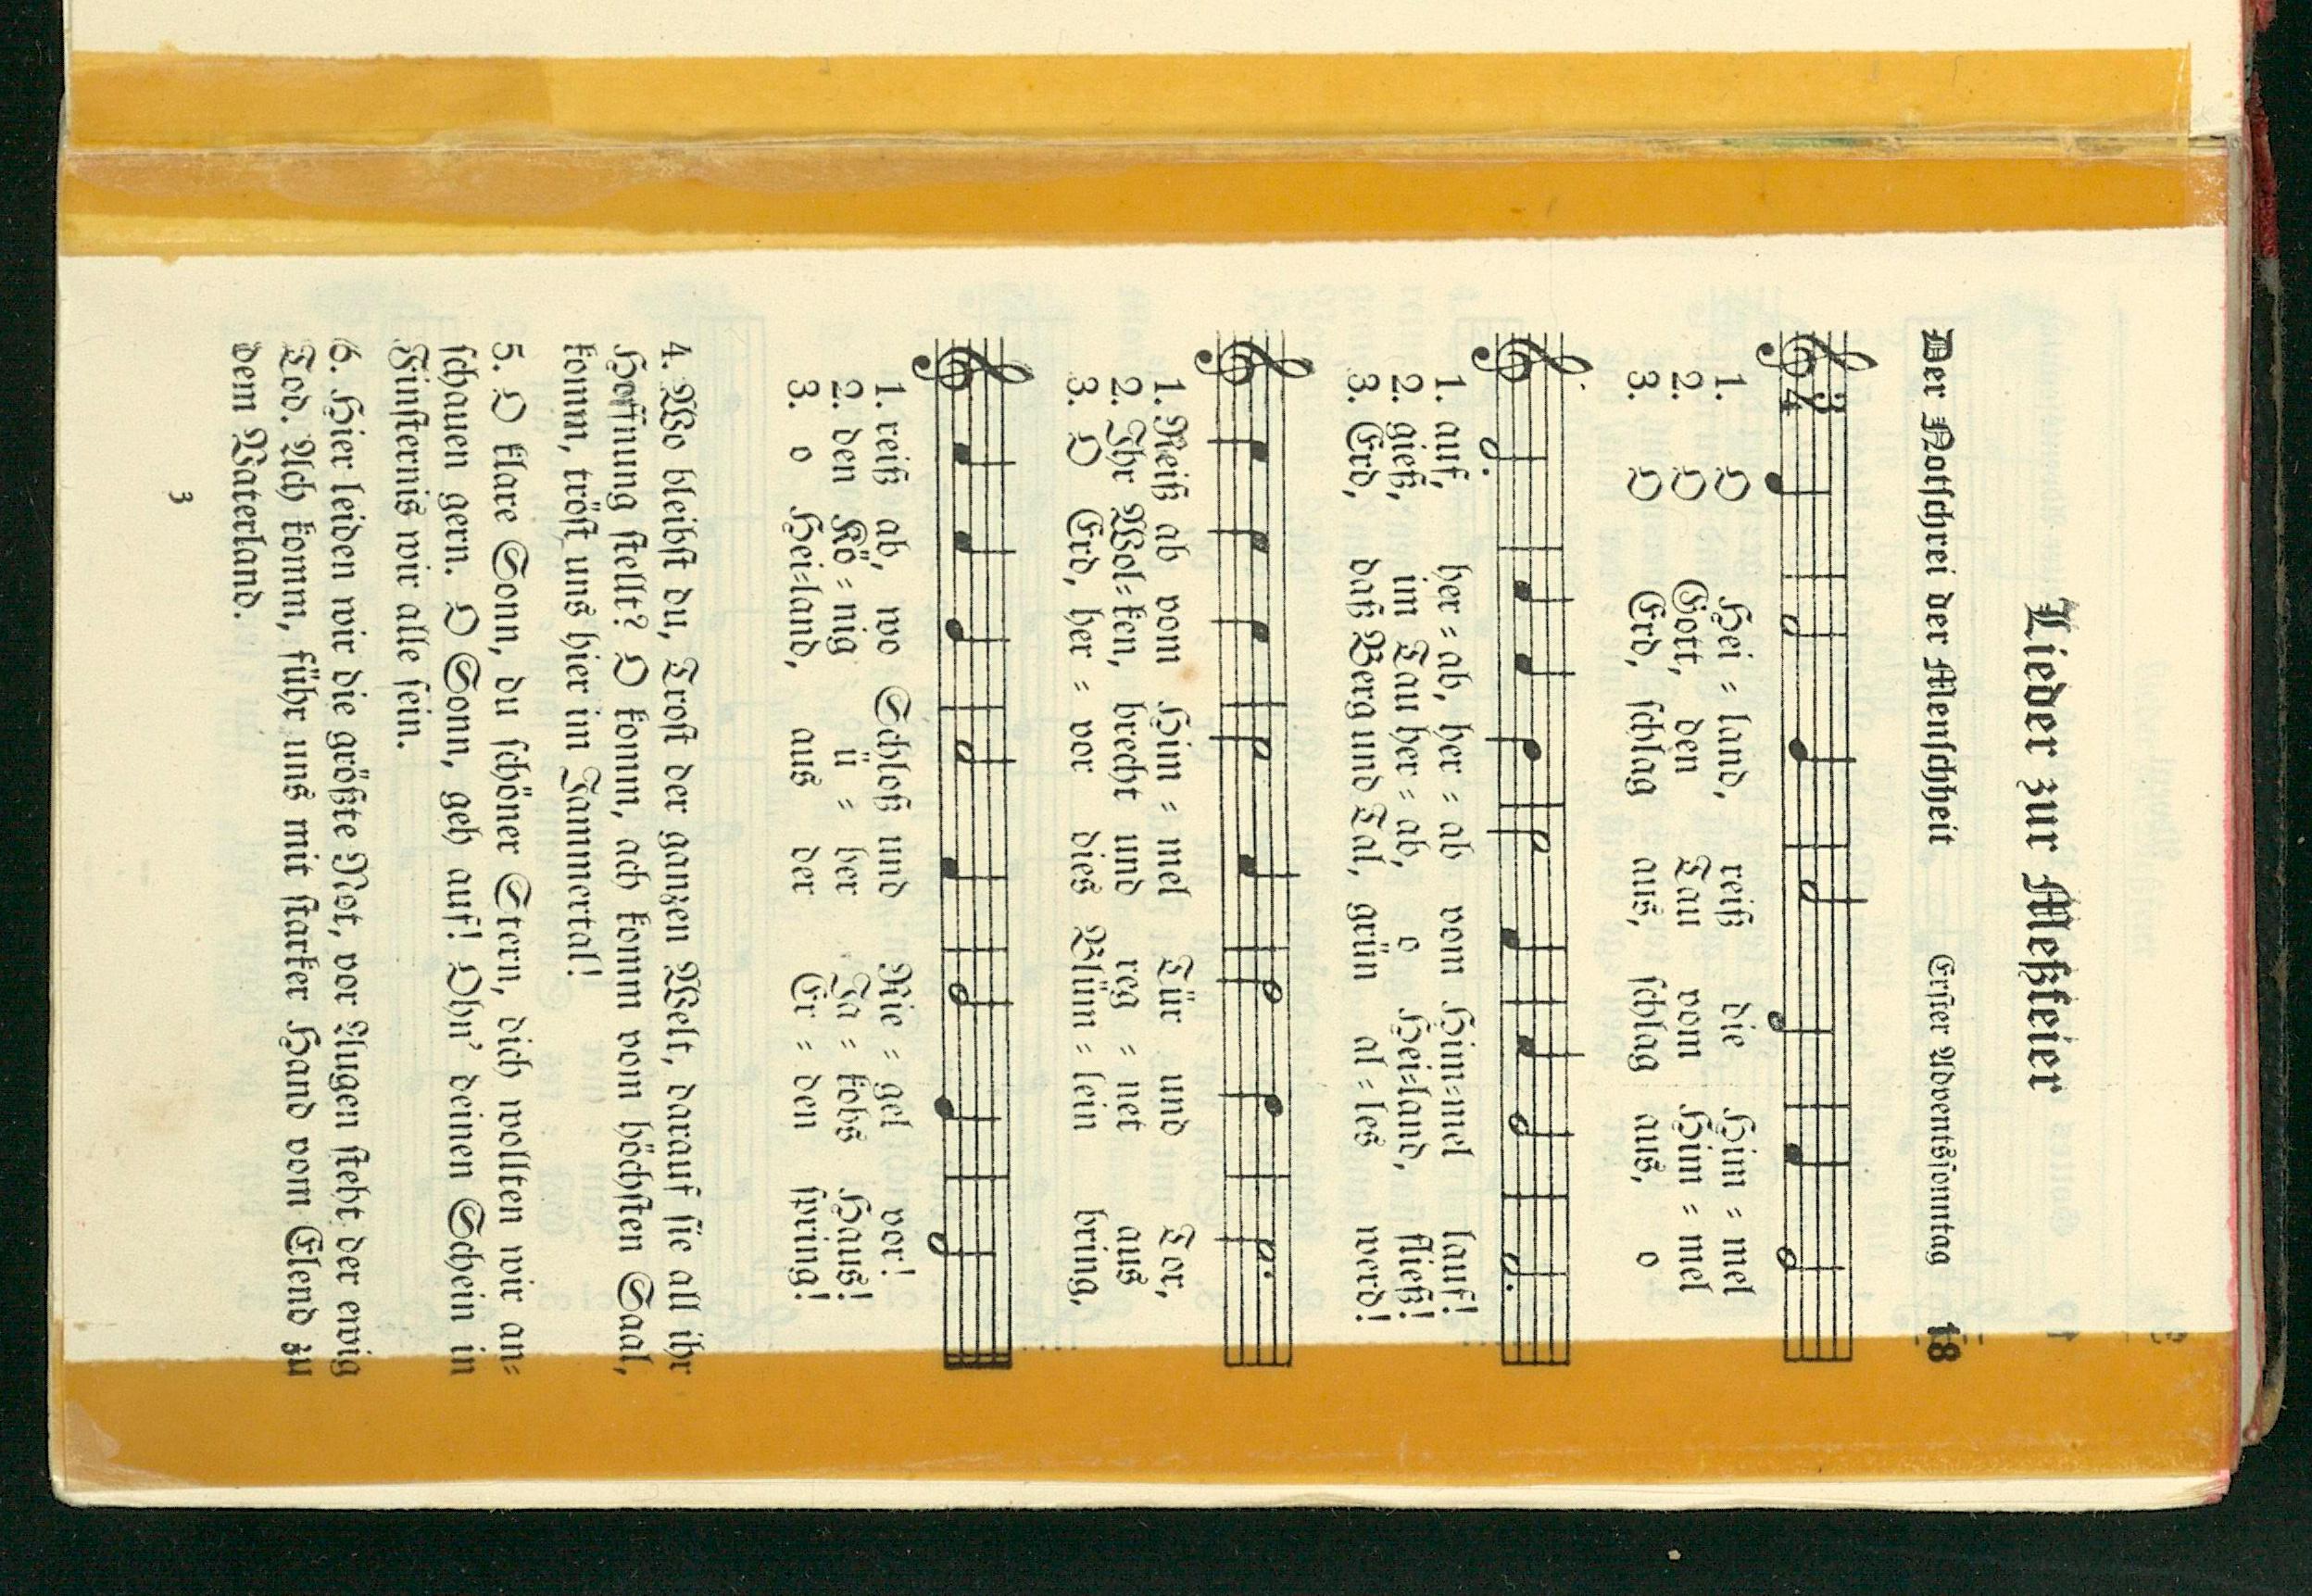 Lieder zur Meßfeier
Der Notschrei der Menschheit Erster Adventssonntag 18
3
4
1. O Hei = land, reiß die Him = mel
2. O Gott, den Tau vom Him = mel
3. O Erd, schlag aus, schlag aus, o
1. auf, her = ab, her = ab vom Him=mel lauf!
2. gieß, im Tau her = ab, o Hei=land, fließ!
3. Erd, daß Berg und Tal, grün al = les werd!
1. Reiß ab vom Him = mel Tür und Tor,
2. Ihr Wol=ken, brecht und reg = net aus
3. O Erd, her = vor dies Blüm = lein bring,
1. reiß ab, wo Schloß und Rie = gel vor!
2. den Kö = nig ü = ber Ja = kobs Haus!
3. o Hei=land, aus der Er = den spring!
4. Wo bleibst du, Trost der ganzen Welt, darauf sie all ihr
Hoffnung stellt? O komm, ach komm vom höchsten Saal,
komm, tröst uns hier im Jammertal!
5. O klare Sonn, du schöner Stern, dich wollten wir an=
schauen gern. O Sonn, geh auf! Ohn’ deinen Schein in
Finsternis wir alle sein.
6. Hier leiden wir die größte Not, vor Augen steht der ewig
Tod. Ach komm, führ uns mit starker Hand vom Elend zu
dem Vaterland.
3